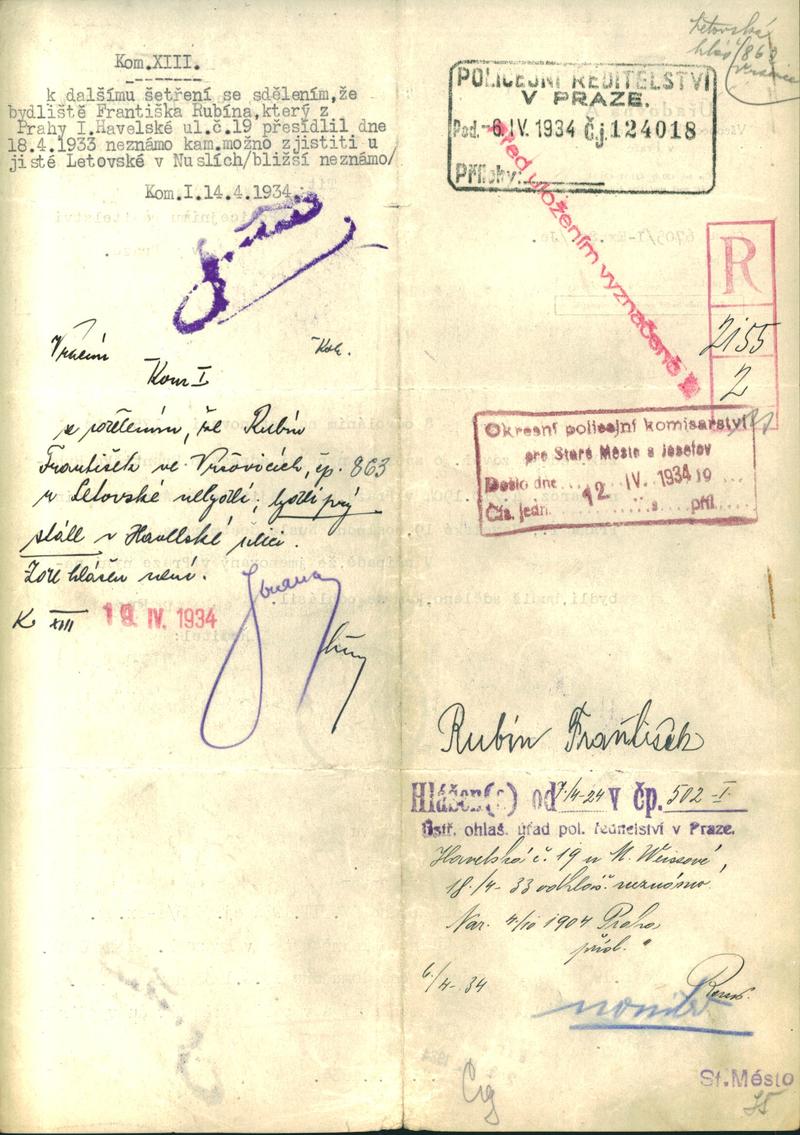 Kom.XIII.
k dalšímu šetření se sdělením,že
bydliště Františka Rubína,který z
Prahy I.Havelské ul.č.19 přesídlil dne
18.4.1933 neznámo kam.možno zjistiti u
jisté Letovské v Nuslích/bližší neznámo/
Kom.I.14.4.1934.
Vracím
Kom I
s sdělením, že Rubín
František ve Vršovicích, čp. 863
u Letovské nebydlí, bydlí prý
stále v Havelské ulici.
Zde hlášen není.
K XIII 19. IV. 1934
Letovská
hláš. 863
Vršovice
POLICEJNÍ ŘEDITELSTVÍ
V PRAZE.
Pod. -6. IV. 1934 č.j. 124018
Přílohy:
Před uložením vyznačeno
R
2155
2
Okresní policejní komisařství
pro Staré Město a Josefov
Došlo dne 12. IV. 1934 19
Čís. jedn. s příl.
Rubín František
Hlášen(a) od 7/4-24 v čp. 502-I
Ústř. ohlaš. úřad pol. ředitelství v Praze.
Havelská č. 19 u M. Weissové,
18/4-33 odhláš. neznámo
Nar. 4/10 1904 Praha
přísl. "
6/4-34
St. Město